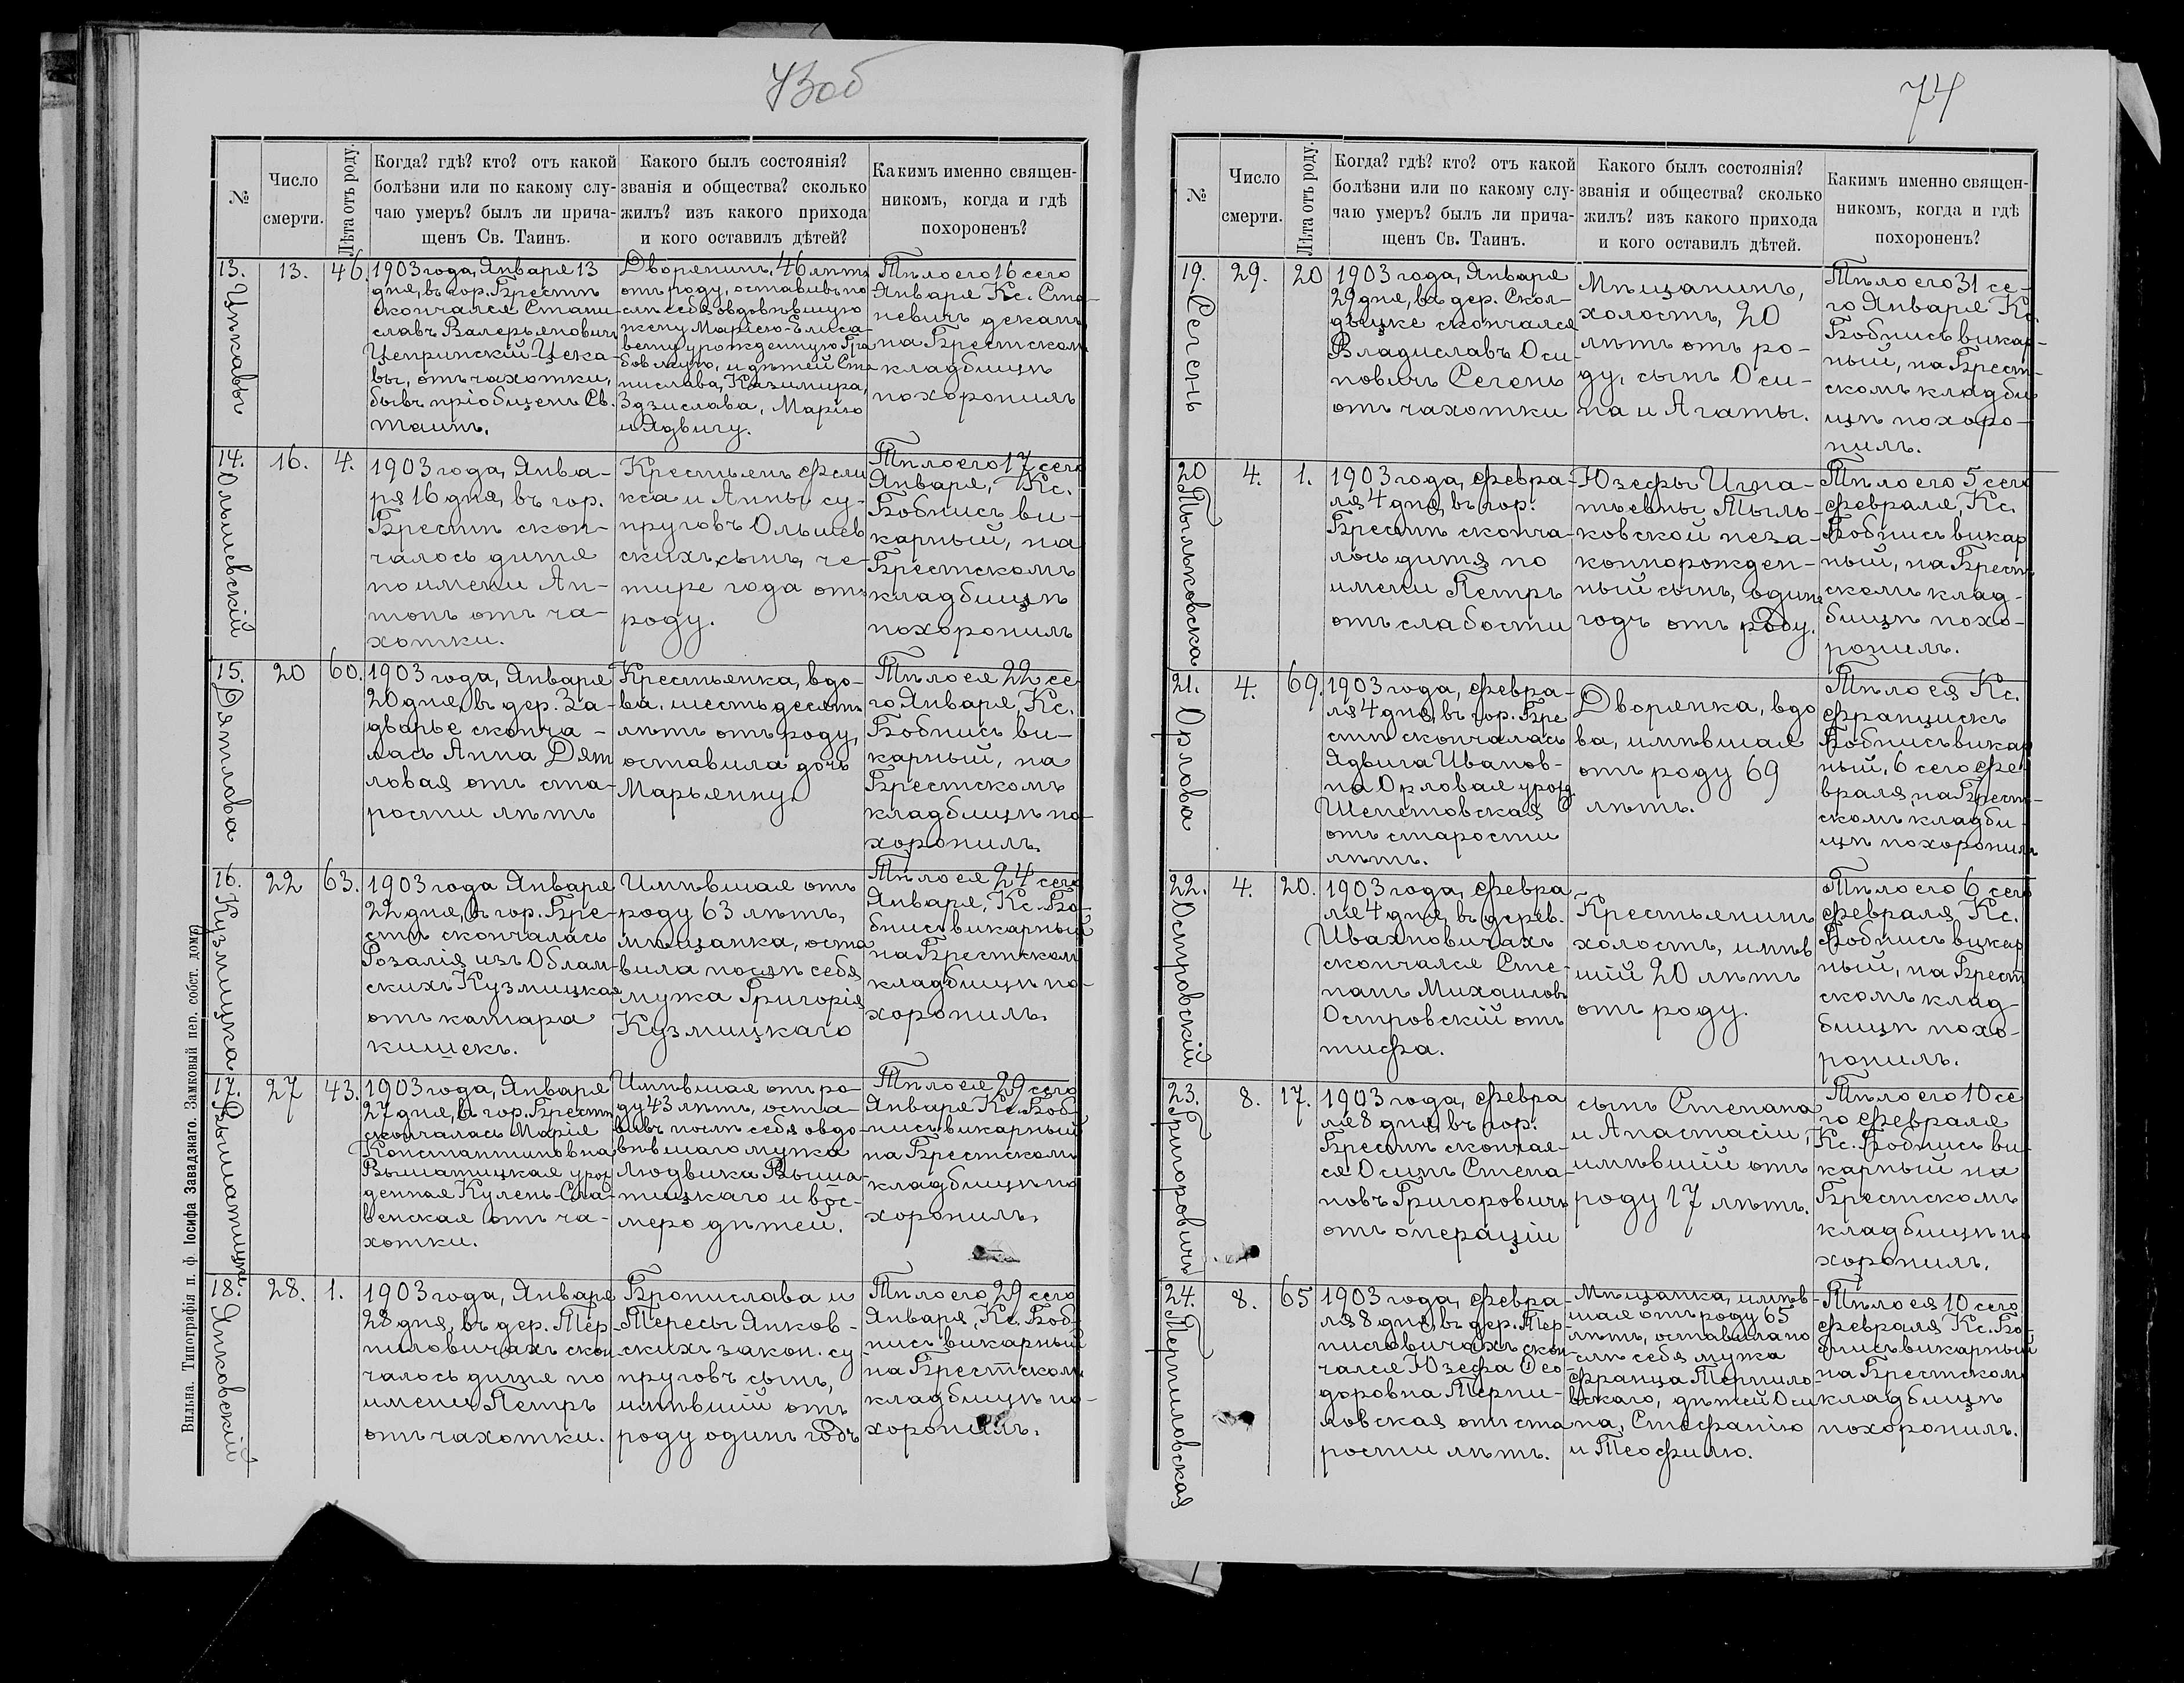 73об
№
Число
смерти.
Лѣта отъ роду.
Когда? гдѣ? кто? отъ какой
болѣзни или по какому слу-
чаю умеръ? былъ ли прича-
щенъ Св. Таинъ.
Какого былъ состоянія?
званія и общества? сколько
жилъ? изъ какого прихода
и кого оставилъ дѣтей?
Какимъ именно священ-
никомъ, когда и гдѣ
похороненъ?
13.
Цекавы
13.
46.
1903 года, Января 13
дня, въ гор. Брестѣ
скончался Стани-
славъ Валерьяновичъ
Цепринскій-Цека-
вы, отъ чахотки,
бывъ пріобщенъ Св.
Таинъ.
Дворянинъ, 46 лѣтъ
отъ роду, оставивъ по
слѣ себя овдовѣвшую
жену Марію-Елиса-
вету урожденную Гра
бовскую, и дѣтей Ста
нислава, Казимира,
Здзислава, Марію
и Ядвигу.
Тѣло его 16 сего
Января Кс. Ста-
невичъ деканъ
на Брестскомъ
кладбищѣ
похоронилъ
14.
Ольшевскій
16.
4.
1903 года, Янва-
ря 16 дня, въ гор.
Брестѣ скон-
чалось дитя
по имени Ан-
тонъ отъ ча-
хотки.
Крестьянъ Фели
кса и Анны су-
пруговъ Ольшев
скихъ сынъ, че-
тыре года отъ
роду.
Тѣло его 17 сего
Января, Кс.
Бобнисъ ви-
карный, на
Брестскомъ
кладбищѣ
похоронилъ
15.
Дятлова
20
60.
1903 года, Января
20 дня, въ дер. За-
дворье сконча-
лась Анна Дят
ловая отъ ста-
рости лѣтъ
Крестьянка, вдо-
ва, шестьдесятъ
лѣтъ отъ роду,
оставила дочь
Марьянну.
Тѣло ея 22 се
го Января, Кс.
Бобнисъ ви-
карный, на
Брестскомъ
кладбищѣ по-
хоронилъ.
16.
Кузмицка
22
63.
1903 года Января
22 дня, въ гор. Бре-
стѣ скончалась
Розалія изъ Облам-
скихъ Кузмицкая
отъ катара
кишекъ.
Имѣвшая отъ
роду 63 лѣтъ,
мѣщанка, оста
вила послѣ себя
мужа Григорія
Кузмицкаго
Тѣло ея 24 сего
Января, Кс. Бо-
бнисъ викарный
на Брестскомъ
кладбищѣ по-
хоронилъ.
17.
Вышатицка
27
43.
1903 года, Января
27 дня, въ гор. Брестѣ
скончалась Марія
Константиновна
Вышатицкая урож
денная Кулень-Сла-
венская отъ ча-
хотки.
Имѣвшая отъ ро-
ду 43 лѣтъ, оста-
вивъ послѣ себя овдо-
вѣвшаго мужа
Людвика Выша-
тицкаго и вос-
меро дѣтей.
Тѣло ея 29 сего
Января Кс. Боб-
нисъ викарный
на Брестскомъ
кладбищѣ по
хоронилъ.
18.
Янковскій
28.
1.
1903 года, Января
28 дня, въ дер. Тер-
пиловичахъ скон-
чалось дитя по
имени Петръ
отъ чахотки.
Бронислава и
Тересы Янков-
скихъ закон. су
пруговъ сынъ,
имѣвшій отъ
роду одинъ годъ
Тѣло его 29 сего
Января, Кс. Боб-
нисъ викарный
на Брестскомъ
кладбищѣ по-
хоронилъ.
Вильна. Типографія п. ф. Іосифа Завадзкаго. Замковый пер. собст. домъ
74
№
Число
смерти.
Лѣта отъ роду.
Когда? гдѣ? кто? отъ какой
болѣзни или по какому слу-
чаю умеръ? былъ ли прича-
щенъ Св. Таинъ.
Какого былъ состоянія?
званія и общества? сколько
жилъ? изъ какого прихода
и кого оставилъ дѣтей.
Какимъ именно священ-
никомъ, когда и гдѣ
похороненъ?
19.
Сегень
29.
20
1903 года, Января
29 дня, въ дер. Скол-
дыцке скончался
Владиславъ Оси-
повичъ Сегень
отъ чахотки
Мѣщанинъ,
холостъ, 20
лѣтъ отъ ро-
ду, сынъ Оси-
па и Агаты.
Тѣло его 31 се-
го Января Кс.
Бобнисъ викар-
ный, на Брест-
скомъ кладби
щѣ похоро-
нилъ.
20
Тыльковска
4.
1.
1903 года, Февра-
ля 4 дня, въ гор.
Брестѣ сконча-
лось дитя по
имени Петръ
отъ слабости
Юзефы Игна-
тьевны Тыль-
ковской неза-
коннорожден-
ный сынъ, одинъ
годъ отъ роду.
Тѣло его 5 сего
Февраля, Кс.
Бобнисъ викар
ный, на Брест-
скомъ клад-
бищѣ похо-
ронилъ.
21.
Орлова
4.
69.
1903 года, Февра-
ля 4 дня, въ гор. Бре
стѣ скончалась
Ядвига Иванов-
на Орловая урож.
Шепетовская
отъ старости
лѣтъ.
Дворянка, вдо
ва, имѣвшая
отъ роду 69
лѣтъ.
Тѣло ея Кс.
Францискъ
Бобнисъ викар
ный, 6 сего Фе-
враля, на Брест-
скомъ кладби-
щѣ похоронилъ
22.
Островскій
4.
20.
1903 года, Февра
ля 4 дня, въ дерев.
Ивахновичахъ
скончался Сте-
панъ Михаиловъ
Островскій отъ
тифа.
Крестьянинъ
холостъ, имѣв
шій 20 лѣтъ
отъ роду.
Тѣло его 6 сего
Февраля, Кс.
Бобнисъ викар
ный, на Брест
скомъ клад-
бищѣ похо-
ронилъ.
23.
Григоровичъ
8.
17.
1903 года, Февра
ля 8 дня, въ гор.
Брестѣ скончал-
ся Осипъ Степа-
новъ Григоровичъ
отъ операціи
сынъ Степана
и Анастасіи,
имѣвшій отъ
роду 17 лѣтъ.
Тѣло его 10 се
го Февраля
Кс. Бобнисъ ви-
карный на
Брестскомъ
кладбищѣ по
хоронилъ.
24.
Терпиловская
8.
65
1903 года, Февра-
ля 8 дня, въ дер. Тер-
пиловичахъ скон-
чался Юзефа Фео-
доровна Терпи-
ловская отъ ста
рости лѣтъ.
Мѣщанка, имѣв-
шая отъ роду 65
лѣтъ, оставила по
слѣ себя мужа
Франца Терпило
вскаго, дѣтей Оси
па, Стефанію
и Теофилю.
Тѣло ея 10 сего
Февраля Кс. Бо-
бнисъ викарный
на Брестскомъ
кладбищѣ
похоронилъ.